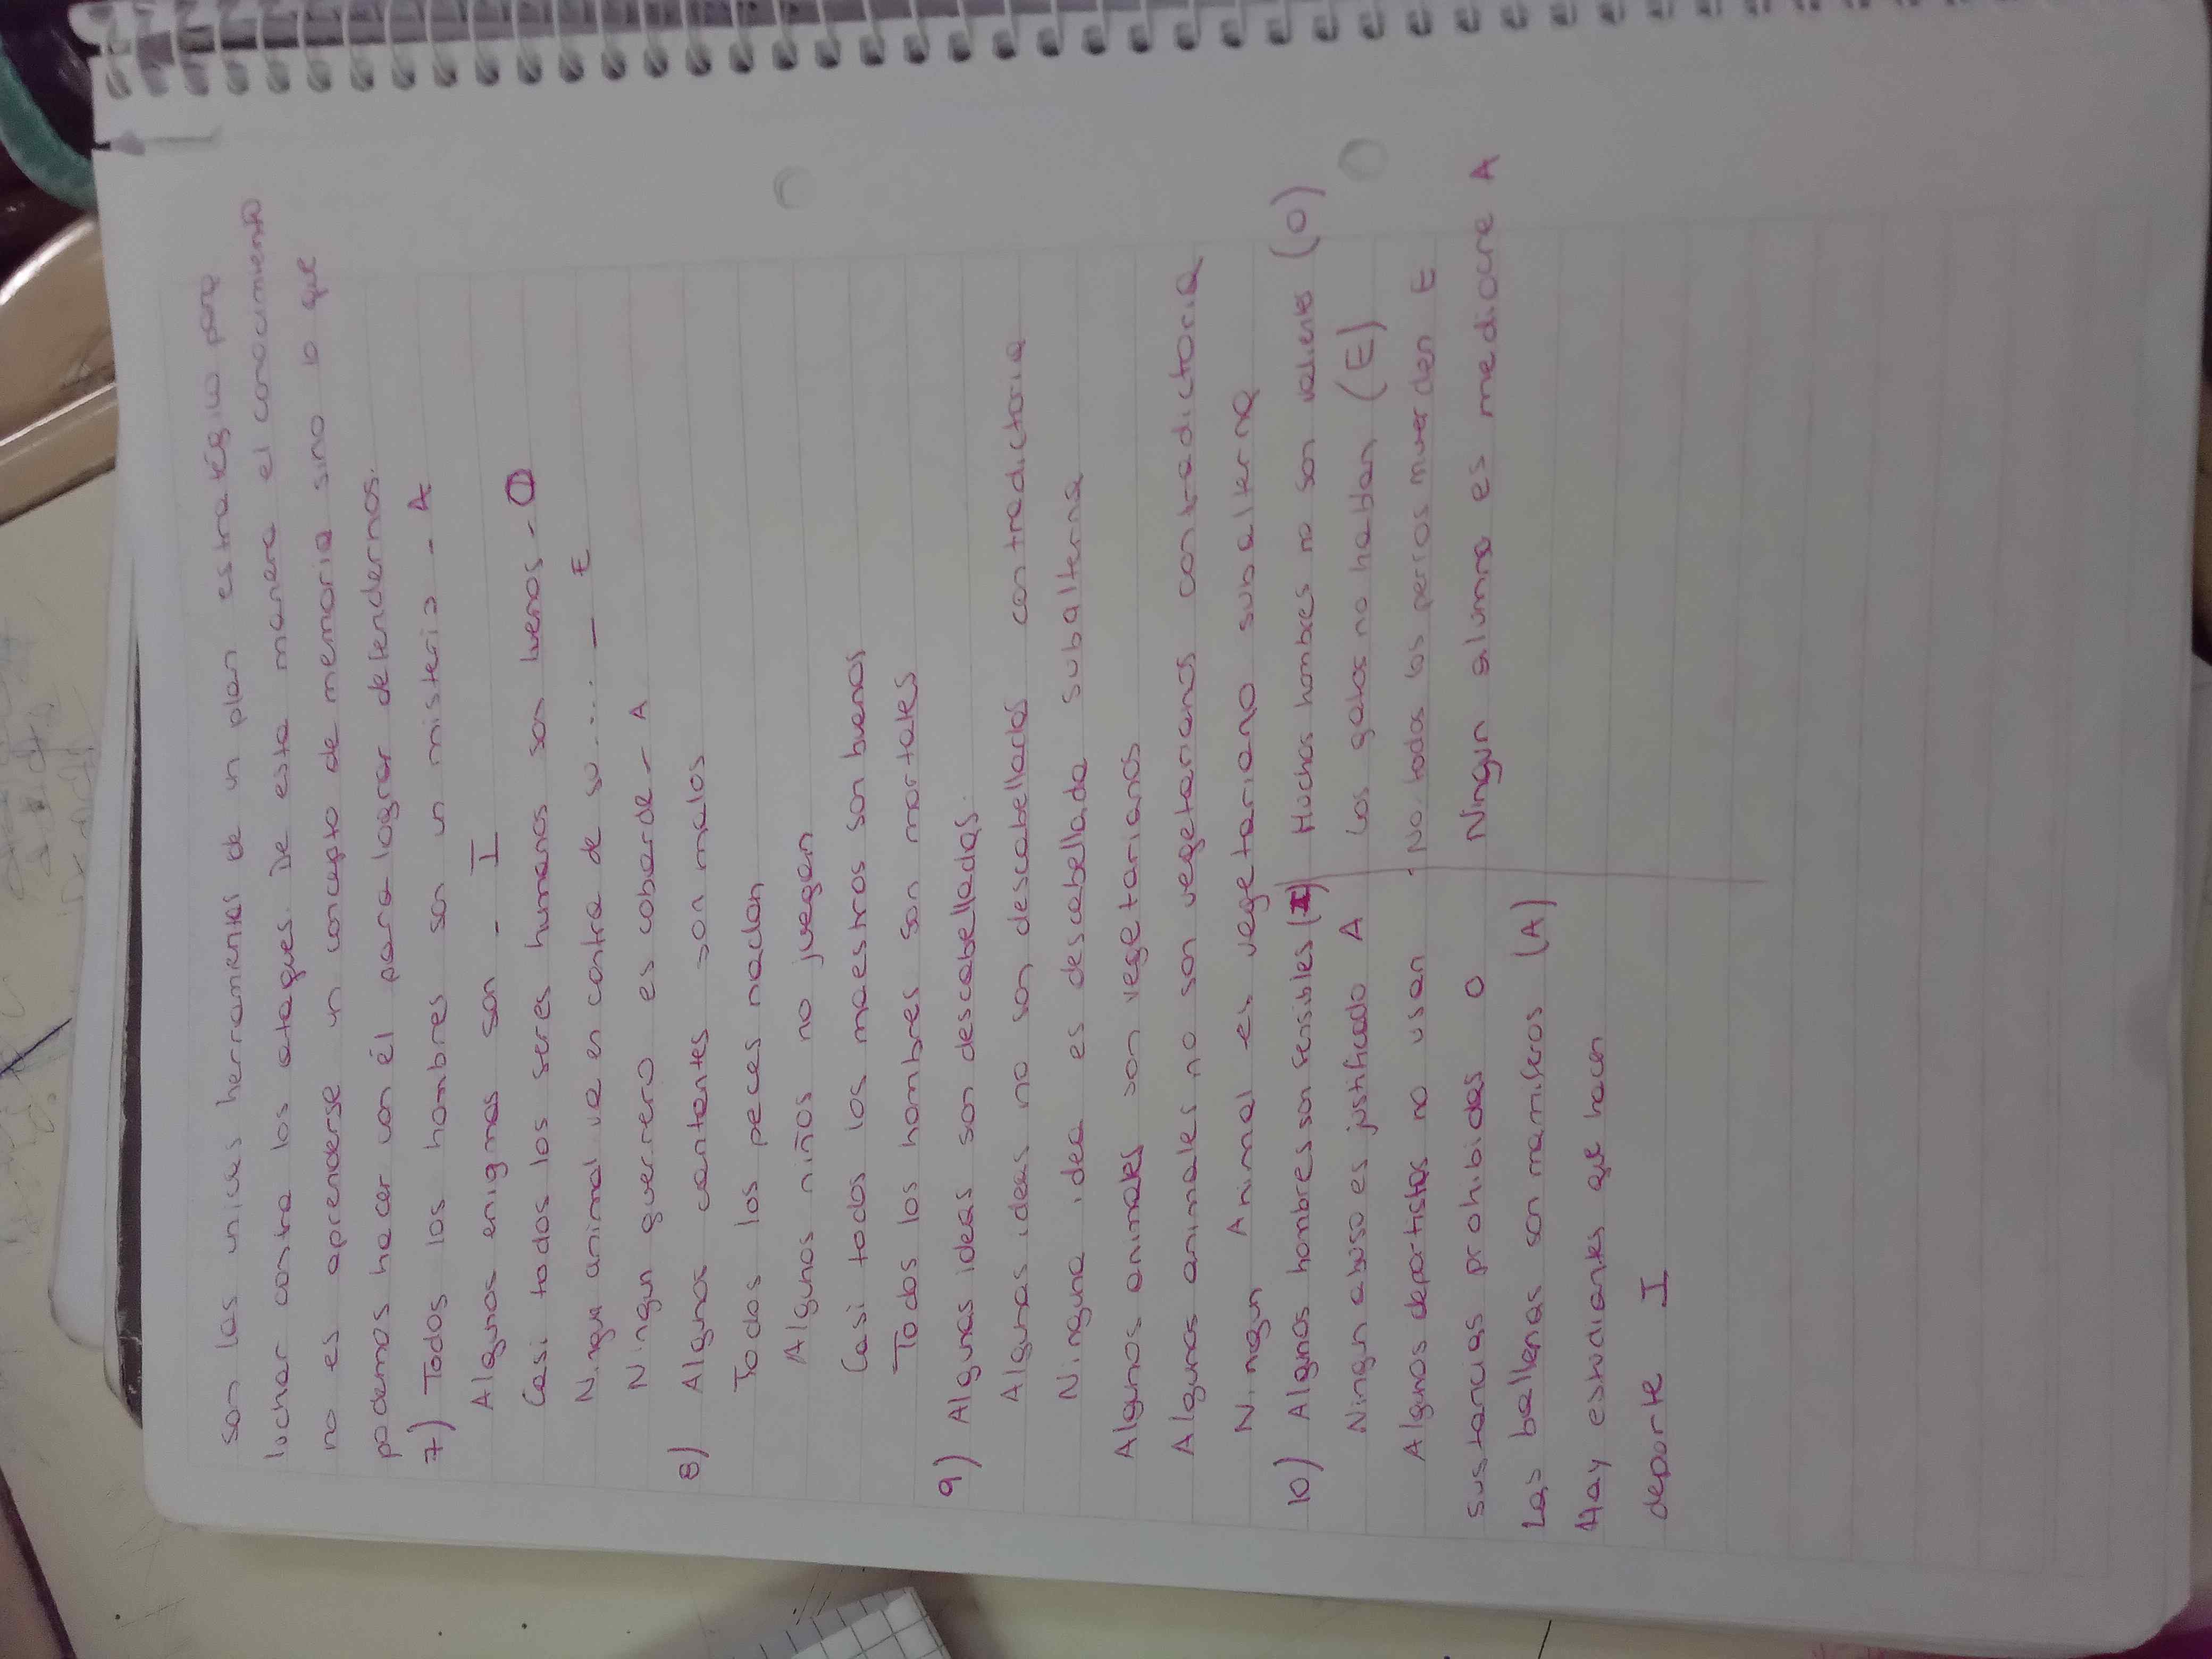 son las unicas herramientas de un plan estratégico para
luchar contra los ataques. De esta manera el conocimiento
no es aprenderse un concepto de memoria sino lo que
podemos hacer con él para lograr defendernos.
7) Todos los hombres son un misterio - A
Algunos enigmas son - I
Casi todos los seres humanos son buenos - O
Ningu animal va en contra de su.... — E
Ningun guerrero es cobarde - A
8) Algunos cantantes son malos
Todos los peces nadan
Algunos niños no juegan
Casi todos los maestros son buenos
Todos los hombres son mortales
9) Algunas ideas son descabelladas.
Algunas ideas no son descabellados contradictoria
Ninguna idea es descabellada subalterna
Algunos animales son vegetarianos
Algunos animales no son vegetarianos contradictoria
Ningun Animal es vegetariano subalterna
10) Algunos hombres son sensibles (I)
Ningun abuso es justificado A
Algunos deportistas no usan
sustancias prohibidas O
Las ballenas son mamiferos (A)
Hay estudiantes que hacen
deporte I
Muchos hombres no son valientes (O)
Los gatos no hablan (E)
No todos los perros muerden E
Ningun alumno es mediocre A